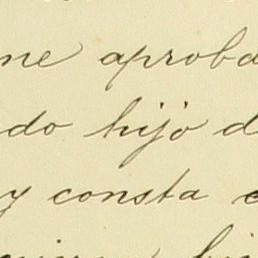 ne aproba
do hijo d
y consta